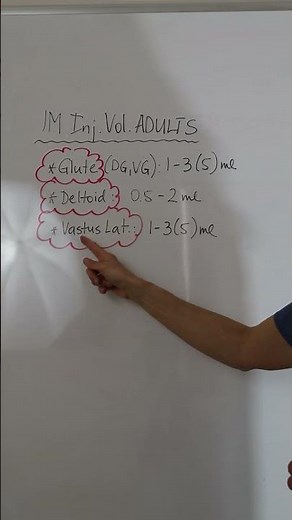 IM Inj. Vol. ADULTS
* Glute (DG, VG): 1-3(5) ml
* Deltoid: 0.5-2 ml
* Vastus Lat.: 1-3(5) ml